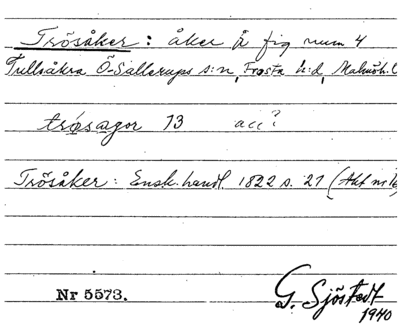 Trösåker: åker å fig num 4
Tullsåkra Ö-Sallerups s:n, Frosta h:d, Malmöh. l
trǿsagor 13 acc?
Trösåker: Ensk. handl. 1822 s. 21 (Akt nr
Nr 5573.
G. Sjöstedt
1940